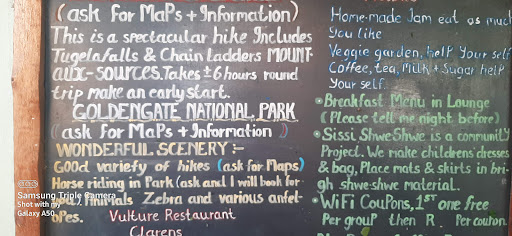 (ask for MaPs + Information)
This is a spectacular hike Includes
Tugela falls & Chain Ladders MOUNT-
aux-sources. Takes ± 6 hours round
trip make an early start.
GOLDENGATE NATIONAL PARK
(ask for MaPs + Information)
WONDERFUL SCENERY :-
GOOd variety of hikes (ask for Maps)
Horse riding in Park (ask and I will book for
Animals Zebra and various antel-
opes.
Vulture Restaurant
Clarens
Home-made Jam eat as much
you like
Veggie garden, help Your self
Coffee, tea, Milk + Sugar help
Your self.
• Breakfast Menu in Lounge
(Please tell me night before)
• Sissi Shwe Shwe is a community
Project. We make childrens dresses
& bag, Place mats & skirts in bri-
gh shwe-shwe material.
• WiFi Coupons, 1ST one free
Per group then R Per coupon
Samsung Triple Camera
Shot with my
Galaxy A50